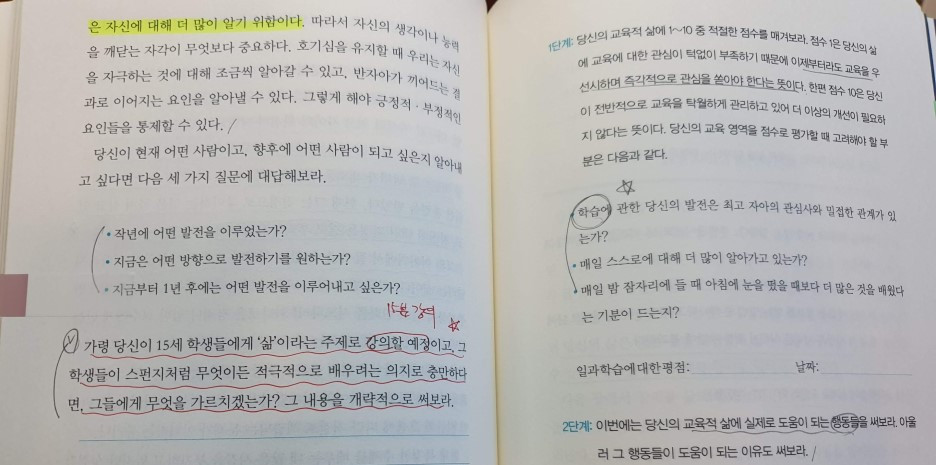 은 자신에 대해 더 많이 알기 위함이다. 따라서 자신의 생각이나 능력
을 깨닫는 자각이 무엇보다 중요하다. 호기심을 유지할 때 우리는 자신
을 자극하는 것에 대해 조금씩 알아갈 수 있고, 반자아가 끼어드는 결
과로 이어지는 요인을 알아낼 수 있다. 그렇게 해야 긍정적·부정적인
요인들을 통제할 수 있다.
당신이 현재 어떤 사람이고, 향후에 어떤 사람이 되고 싶은지 알아내
고 싶다면 다음 세 가지 질문에 대답해보라.
• 작년에 어떤 발전을 이루었는가?
• 지금은 어떤 방향으로 발전하기를 원하는가?
• 지금부터 1년 후에는 어떤 발전을 이루어내고 싶은가?
15분 강의
가령 당신이 15세 학생들에게 '삶'이라는 주제로 강의할 예정이고, 그
학생들이 스펀지처럼 무엇이든 적극적으로 배우려는 의지로 충만하다
면, 그들에게 무엇을 가르치겠는가? 그 내용을 개략적으로 써보라.
1단계: 당신의 교육적 삶에 1~10 중 적절한 점수를 매겨보라. 점수 1은 당신의 삶
에 교육에 대한 관심이 턱없이 부족하기 때문에 이제부터라도 교육을 우
선시하며 즉각적으로 관심을 쏟아야 한다는 뜻이다. 한편 점수 10은 당신
이 전반적으로 교육을 탁월하게 관리하고 있어 더 이상의 개선이 필요하
지 않다는 뜻이다. 당신의 교육 영역을 점수로 평가할 때 고려해야 할 부
분은 다음과 같다.
• 학습에 관한 당신의 발전은 최고 자아의 관심사와 밀접한 관계가 있
는가?
• 매일 스스로에 대해 더 많이 알아가고 있는가?
• 매일 밤 잠자리에 들 때 아침에 눈을 떴을 때보다 더 많은 것을 배웠다
는 기분이 드는지?
일과 학습에 대한 평점: 날짜:
2단계: 이번에는 당신의 교육적 삶에 실제로 도움이 되는 행동들을 써보라. 아울
러 그 행동들이 도움이 되는 이유도 써보라.